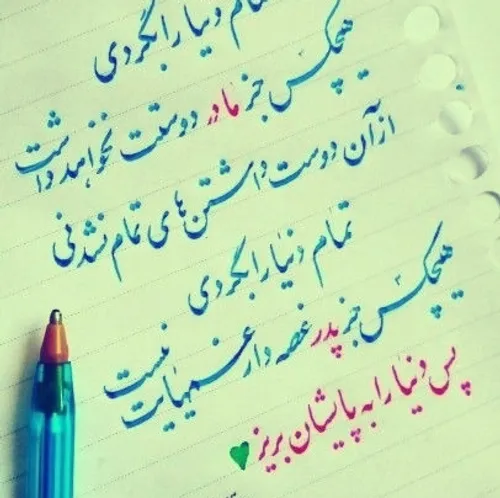 تمام دنیا را بگردی
هیچکس جز مادر دوستت نخواهد داشت
از آن دوست داشتن های تمام نشدنی
تمام دنیا را بگردی
هیچکس جز پدر غصه دار غمهایت نیست
پس دنیا را به پایشان بریز